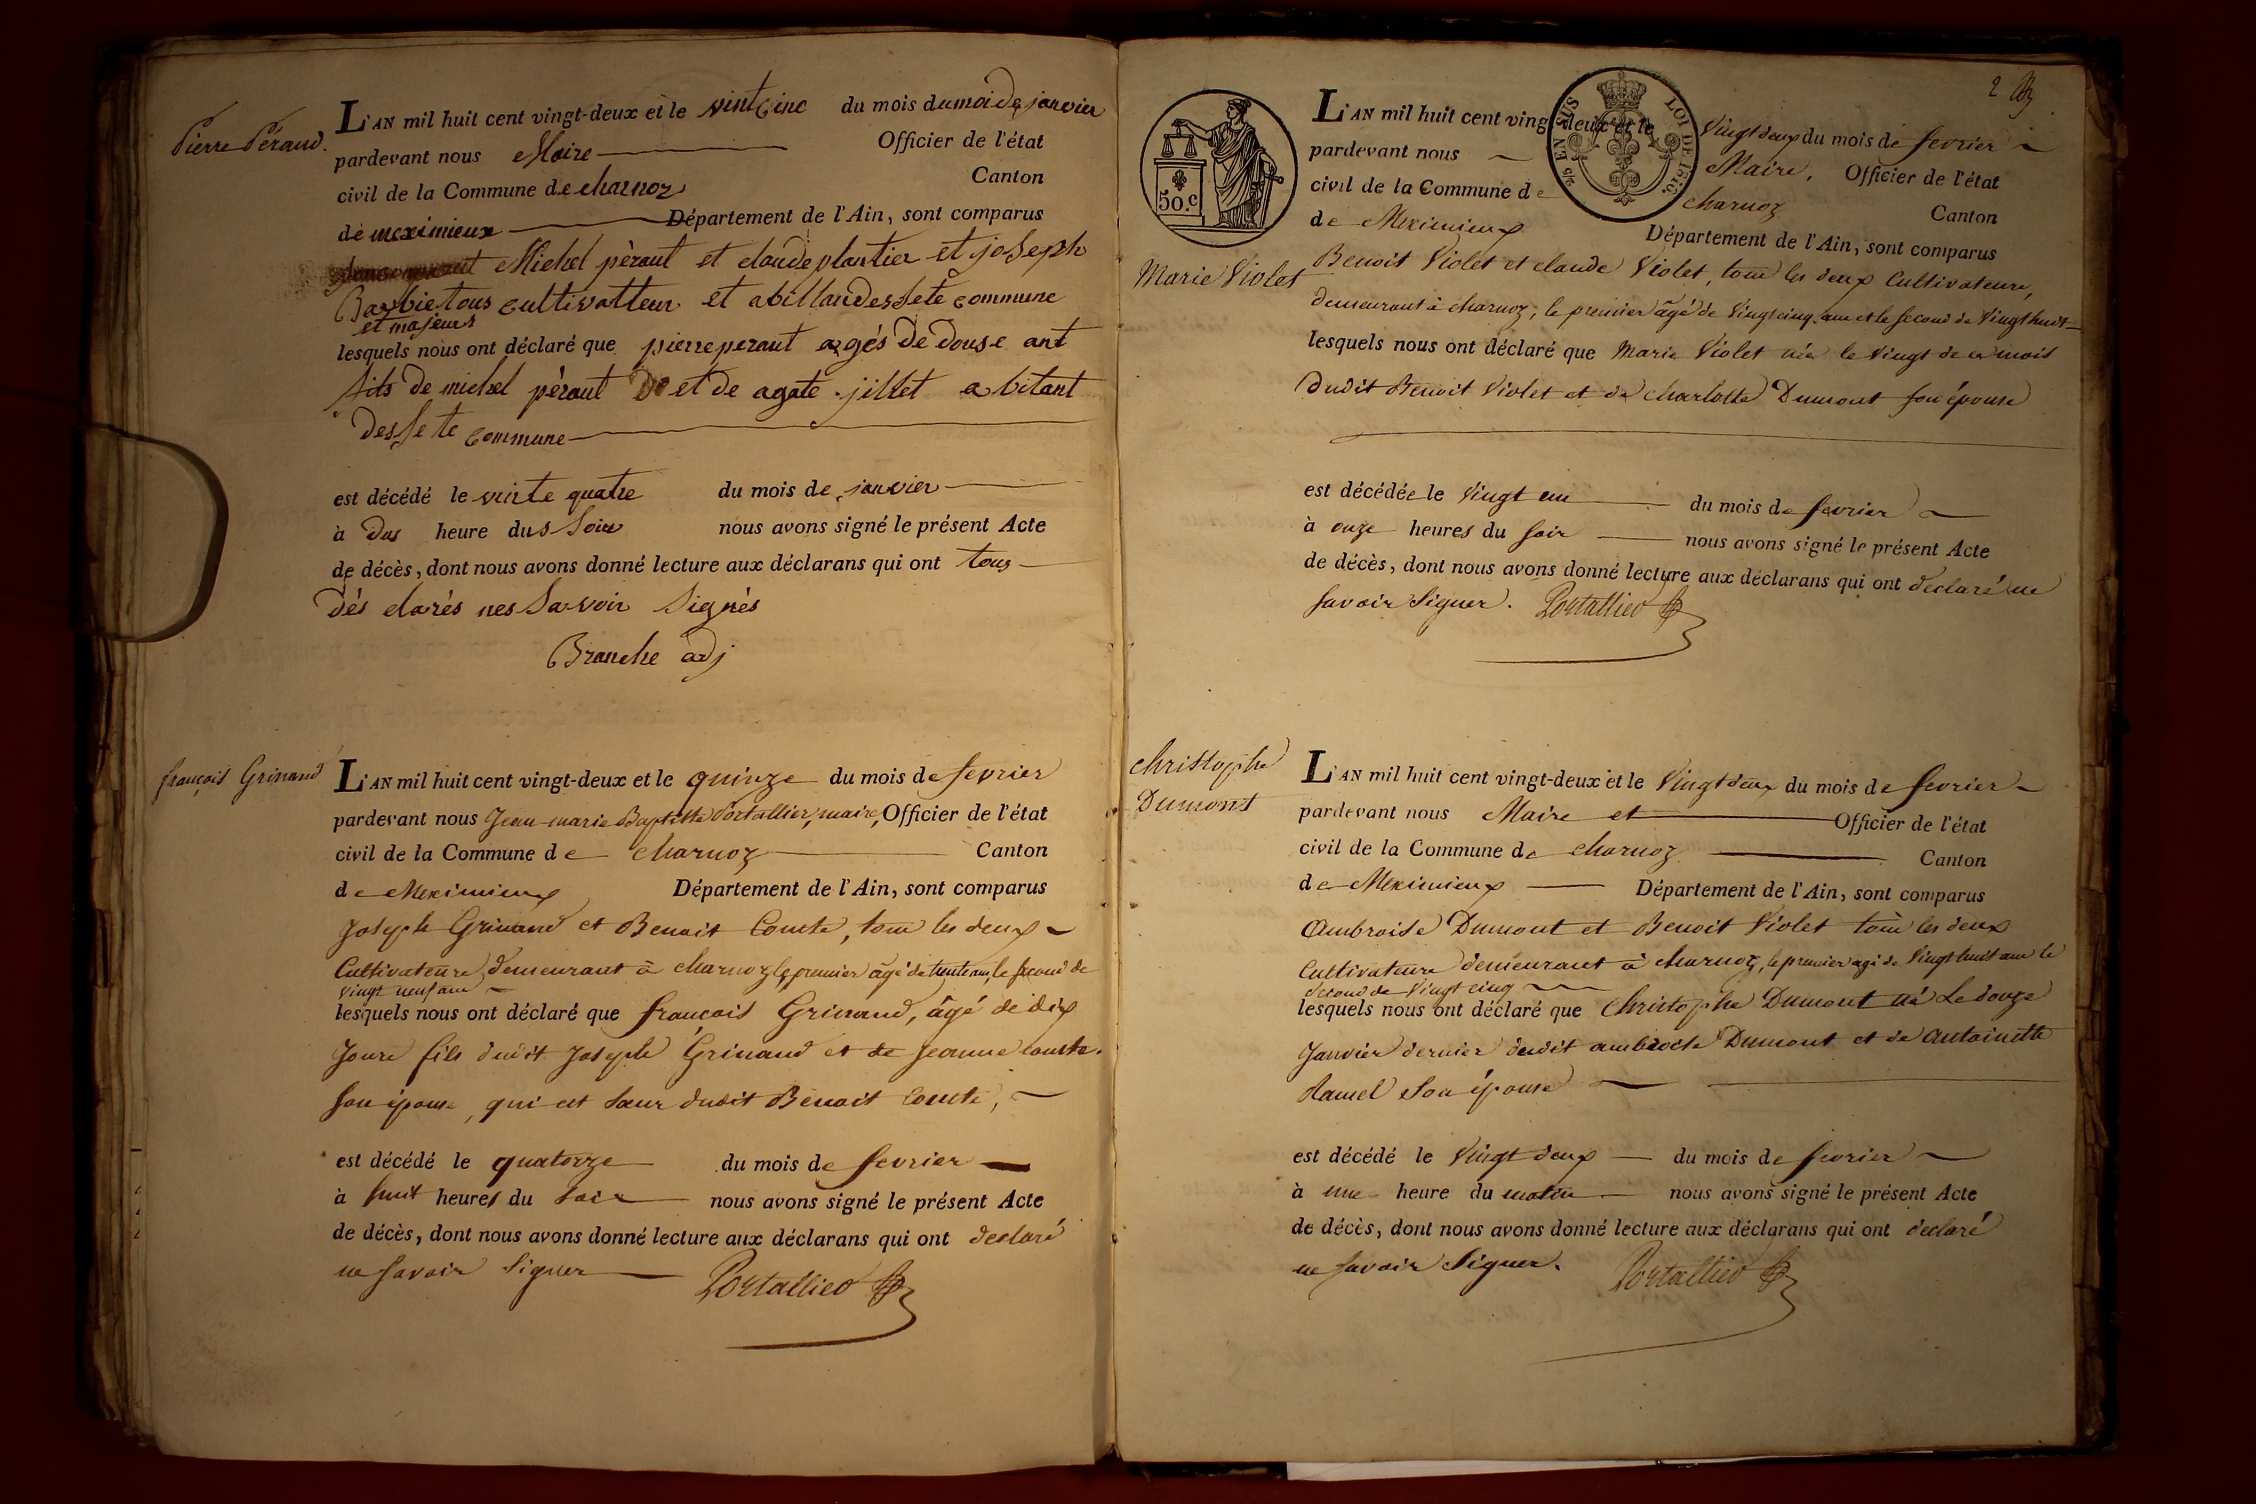 Pierre Péraud.
L'AN mil huit cent vingt-deux et le vint cinc du mois du moi de janvier
pardevant nous Maire Officier de l'état
civil de la Commune de charnoz Canton
de meximieux Département de l'Ain, sont comparus
Michel péraut et claude plantier et joseph
Barbie tous cultivatteur et abillandessete commune
et majeurs
lesquels nous ont déclaré que pierre peraut agés de douse ant
fits de michel péraut et de agate jillet abitant
dessete commune
est décédé le vinte quatre du mois de janvier
à dus heure dus soir nous avons signé le présent Acte
de décès, dont nous avons donné lecture aux déclarans qui ont tous
dés clarés nes savoir signés
Branche adj
françois Grinand
L'AN mil huit cent vingt-deux et le quinze du mois de fevrier
pardevant nous Jean-marie Baptiste Portallier, maire, Officier de l'état
civil de la Commune de charnoz Canton
de Meximieux Département de l'Ain, sont comparus
Joseph Grinand et Benoit Comte, tous les deux
Cultivateurs demeurant à charnoz, le premier âgé de trente ans, le second de
vingt neuf ans
lesquels nous ont déclaré que françois Grinand, âgé de dix
jours fils dudit Joseph Grinand et de jeanne comte
son épouse, qui est sœur dudit Benoit Comte,
est décédé le quatorze du mois de fevrier
à huit heures du soir nous avons signé le présent Acte
de décès, dont nous avons donné lecture aux déclarans qui ont declaré
ne savoir signer Portallier
2
50.c
5/10 EN SUS
LOI DE 1816.
Marie Violet
L'AN mil huit cent vingt-deux et le vingt deux du mois de fevrier
pardevant nous Maire, Officier de l'état
civil de la Commune de charnoz Canton
de Meximieux Département de l'Ain, sont comparus
Benoit Violet et claude Violet, tous les deux Cultivateurs,
demeurant à charnoz, le premier âgé de vingt cinq ans et le second de vingt huit
lesquels nous ont déclaré que Marie Violet née le vingt de ce mois
dudit Benoit Violet et de charlotte Dumont son épouse
est décédée le vingt un du mois de fevrier
à onze heures du soir nous avons signé le présent Acte
de décès, dont nous avons donné lecture aux déclarans qui ont declaré ne
savoir signer. Portallier
christophe
Dumont
L'AN mil huit cent vingt-deux et le vingt deux du mois de fevrier
pardevant nous Maire et Officier de l'état
civil de la Commune de charnoz Canton
de Meximieux Département de l'Ain, sont comparus
Ambroise Dumont et Benoit Violet tous les deux
Cultivateurs demeurant à charnoz, le premier agé de vingt huit ans le
second de vingt cinq
lesquels nous ont déclaré que Christophe Dumont né le douze
janvier dernier dudit ambroise Dumont et de antoinette
Ramel son épouse
est décédé le vingt deux du mois de fevrier
à une heure du matin nous avons signé le présent Acte
de décès, dont nous avons donné lecture aux déclarans qui ont declaré
ne savoir signer. Portallier